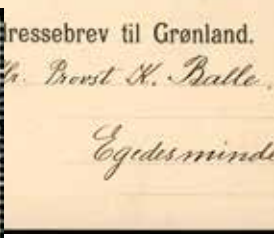 dressebrev til Grønland.
Hr. Provst K. Balle.
Egedesminde